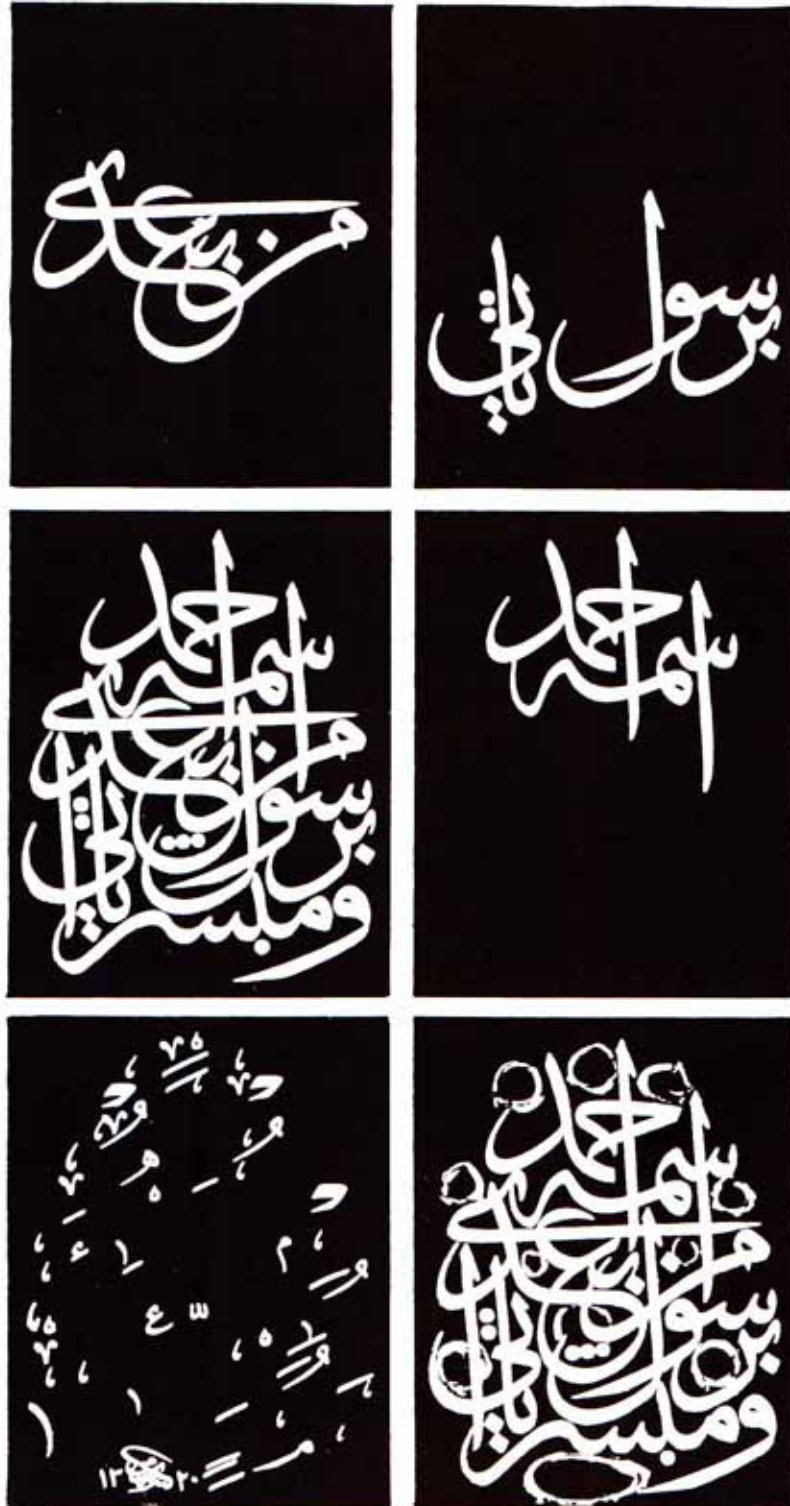 برسول ياتي
من بعدي
اسمه احمد
ومبشرا برسول ياتي من بعدي اسمه احمد
ومبشرا برسول ياتي من بعدي اسمه احمد